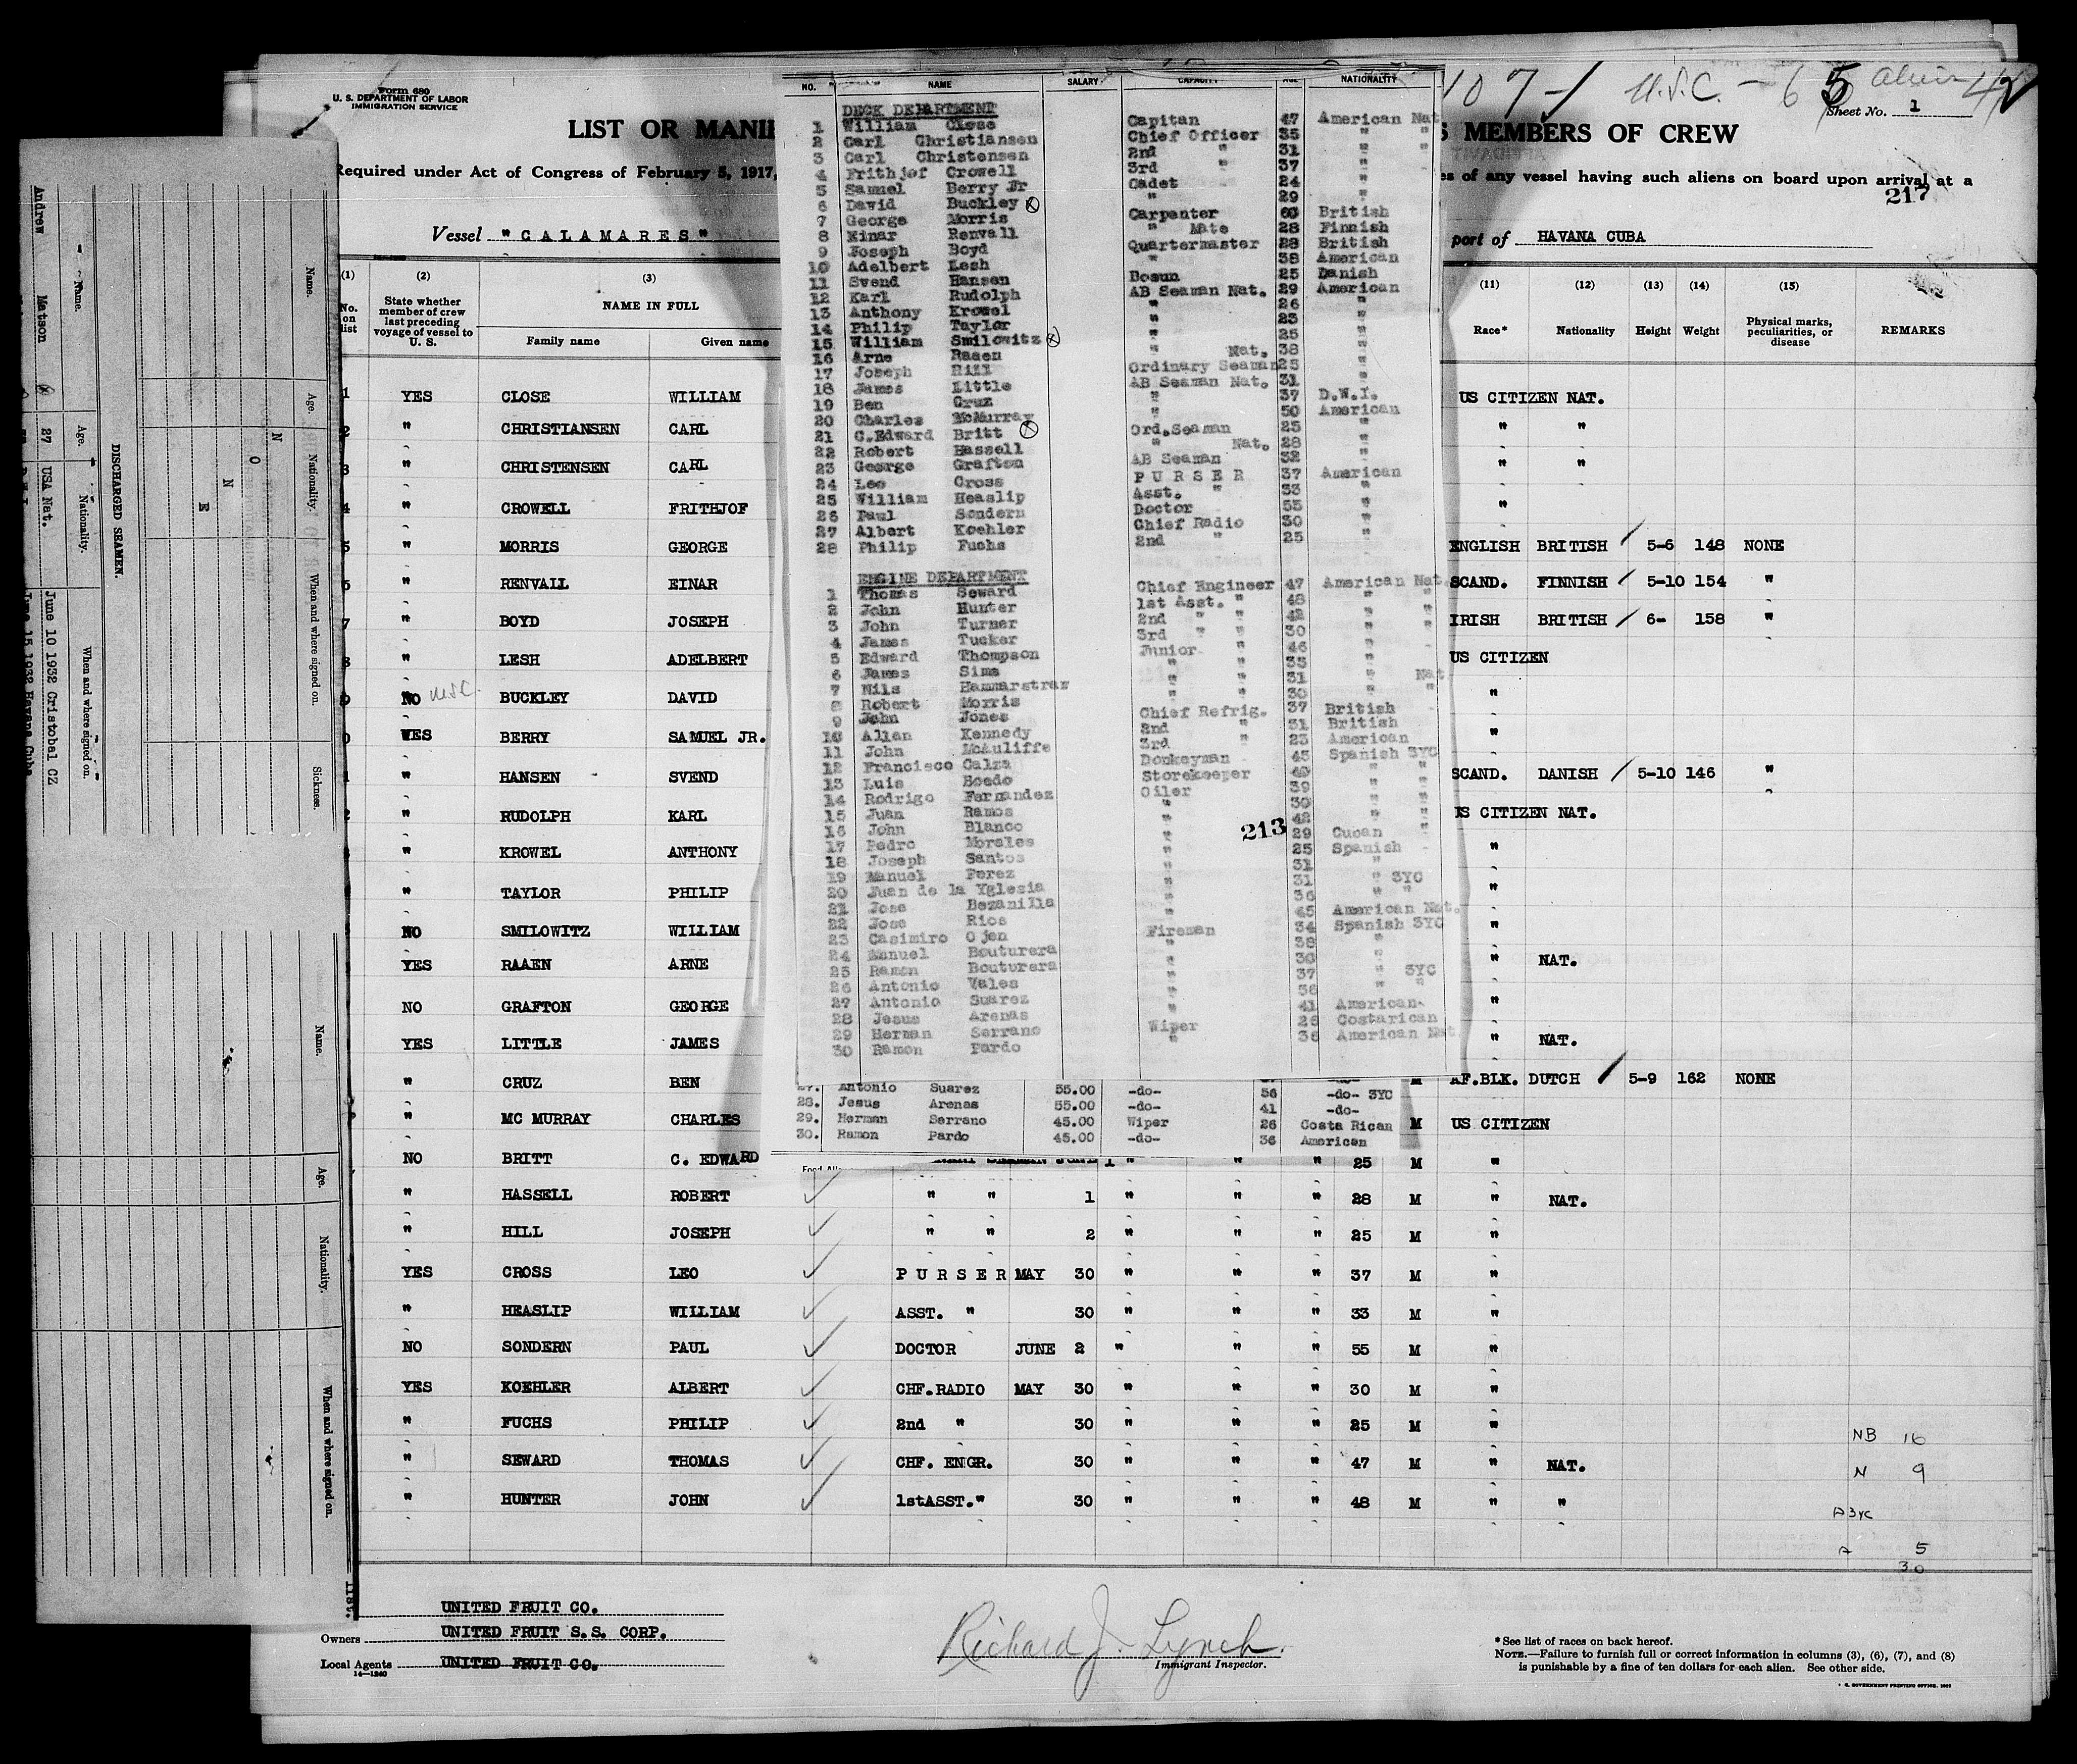 Form 680
U. S. DEPARTMENT OF LABOR
IMMIGRATION SERVICE
LIST OR MANI
S MEMBERS OF CREW
Sheet No. 1
107-1 U.S.C. - 65 Aliens 42
Required under Act of Congress of February 5, 1917,
es of any vessel having such aliens on board upon arrival at a
217
Vessel "CALAMARES"
port of HAVANA CUBA
(1) (2) (3) (11) (12) (13) (14) (15)
No. on list
State whether member of crew last preceding voyage of vessel to U. S.
NAME IN FULL
Family name Given name
Race* Nationality Height Weight Physical marks, peculiarities, or disease REMARKS
1 YES CLOSE WILLIAM US CITIZEN NAT.
2 " CHRISTIANSEN CARL " "
3 " CHRISTENSEN CARL " "
4 " CROWELL FRITHJOF "
5 " MORRIS GEORGE ENGLISH BRITISH 5-6 148 NONE
6 " RENVALL EINAR SCAND. FINNISH 5-10 154 "
7 " BOYD JOSEPH IRISH BRITISH 6- 158 "
8 " LESH ADELBERT US CITIZEN
9 NO BUCKLEY DAVID "
0 YES BERRY SAMUEL JR. "
1 " HANSEN SVEND SCAND. DANISH 5-10 146 "
2 " RUDOLPH KARL US CITIZEN NAT.
" KROWEL ANTHONY "
" TAYLOR PHILIP "
NO SMILOWITZ WILLIAM "
YES RAAEN ARNE " NAT.
NO GRAFTON GEORGE "
YES LITTLE JAMES " NAT.
" CRUZ BEN M AF.BLK. DUTCH 5-9 162 NONE
" MC MURRAY CHARLES M US CITIZEN
NO BRITT C. EDWARD 1 " " " 25 M "
" HASSELL ROBERT " " 1 " " " 28 M " NAT.
" HILL JOSEPH " " 2 " " " 25 M "
YES CROSS LEO PURSER MAY 30 " " " 37 M "
" HEASLIP WILLIAM ASST. " 30 " " " 33 M "
NO SONDERN PAUL DOCTOR JUNE 2 " " " 55 M "
YES KOEHLER ALBERT CHF.RADIO MAY 30 " " " 30 M "
" FUCHS PHILIP 2nd " 30 " " " 25 M "
" SEWARD THOMAS CHF. ENGR. 30 " " " 47 M " NAT.
" HUNTER JOHN 1stASST." 30 " " " 48 M " "
NB 16
N 9
A 3YC
A 5
30
UNITED FRUIT CO.
Owners UNITED FRUIT S.S. CORP.
Local Agents UNITED FRUIT CO.
14-1240
Richard J. Lynch
Immigrant Inspector.
*See list of races on back hereof.
NOTE.—Failure to furnish full or correct information in columns (3), (6), (7), and (8)
is punishable by a fine of ten dollars for each alien. See other side.
NO. NAME SALARY CAPACITY AGE NATIONALITY
DECK DEPARTMENT
1 William Close Capitan 47 American Nat
2 Carl Christiansen Chief Officer 35 " "
3 Carl Christensen 2nd " 31 " "
4 Frithjof Crowell 3rd " 37 "
5 Samuel Berry Jr Cadet 24 "
6 David Buckley " 29 "
7 George Morris Carpenter 60 British
8 Einar Renvall " Mate 28 Finnish
9 Joseph Boyd Quartermaster 28 British
10 Adelbert Lesh " 38 American
11 Svend Hansen Bosun 25 Danish
12 Karl Rudolph AB Seaman Nat. 29 American
13 Anthony Krowel " 26 "
14 Philip Taylor " 23 "
15 William Smilowitz " 25 "
16 Arne Raaen " Nat. 38 "
17 Joseph Hill Ordinary Seaman 25 "
18 James Little AB Seaman Nat. 31 "
19 Ben Cruz " 37 D.W.I.
20 Charles McMurray " 50 American
21 C.Edward Britt Ord.Seaman 25 "
22 Robert Hassell " Nat. 28 "
23 George Grafton AB Seaman 32 "
24 Leo Cross PURSER 37 American
25 William Heaslip Asst. " 33 "
26 Paul Sondern Doctor 55 "
27 Albert Koehler Chief Radio 30 "
28 Philip Fuchs 2nd " 25 "
ENGINE DEPARTMENT
1 Thomas Seward Chief Engineer 47 American Nat
2 John Hunter 1st Asst. " 48 " "
3 John Turner 2nd " " 42 " "
4 James Tucker 3rd " " 30 "
5 Edward Thompson Junior " 46 "
6 James Sims " " 33 "
7 Nils Hammarstram " " 31 " Nat
8 Robert Morris " " 30 " "
9 John Jones Chief Refrig. 37 British
10 Allan Kennedy 2nd " 31 British
11 John McAuliffe 3rd " 23 American
12 Francisco Calza Donkeyman 45 Spanish 3YC
13 Luis Boedo Storekeeper 49 " "
14 Rodrigo Fernandez Oiler 39 " "
15 Juan Ramos " 30 " "
16 John Blanco " 42 " "
17 Pedro Morales " 29 Cuban
18 Joseph Santos " 25 Spanish
19 Manuel Perez " 31 "
20 Juan de la Yglesia " 31 " 3YC
21 Jose Bezanilla " 36 " "
22 Jose Rios " 45 American Nat.
23 Casimiro Ojen Fireman 34 Spanish 3YC
24 Manuel Bouturera " 38 "
25 Ramon Bouturera " 30 "
26 Antonio Vales " 37 " 3YC
27 Antonio Suarez " 56 " "
28 Jesus Arenas " 41 American
29 Herman Serrano Wiper 26 Costarican
30 Ramon Pardo " 36 American Nat
213
27. Antonio Suarez 55.00 -do- 56 -do- 3YC
28. Jesus Arenas 55.00 -do- 41 -do-
29. Herman Serrano 45.00 Wiper 26 Costa Rican
30. Ramon Pardo 45.00 -do- 36 American
DISCHARGED SEAMEN.
Name. Age. Nationality. When and where signed on.
Andrew Matson 27 USA Nat. June 10 1932 Cristobal CZ
June 15 1932 Havana Cuba
Name. Age. Nationality. When and where signed on. Sickness.
N O N E
Name. Age. Nationality. When and where signed on.